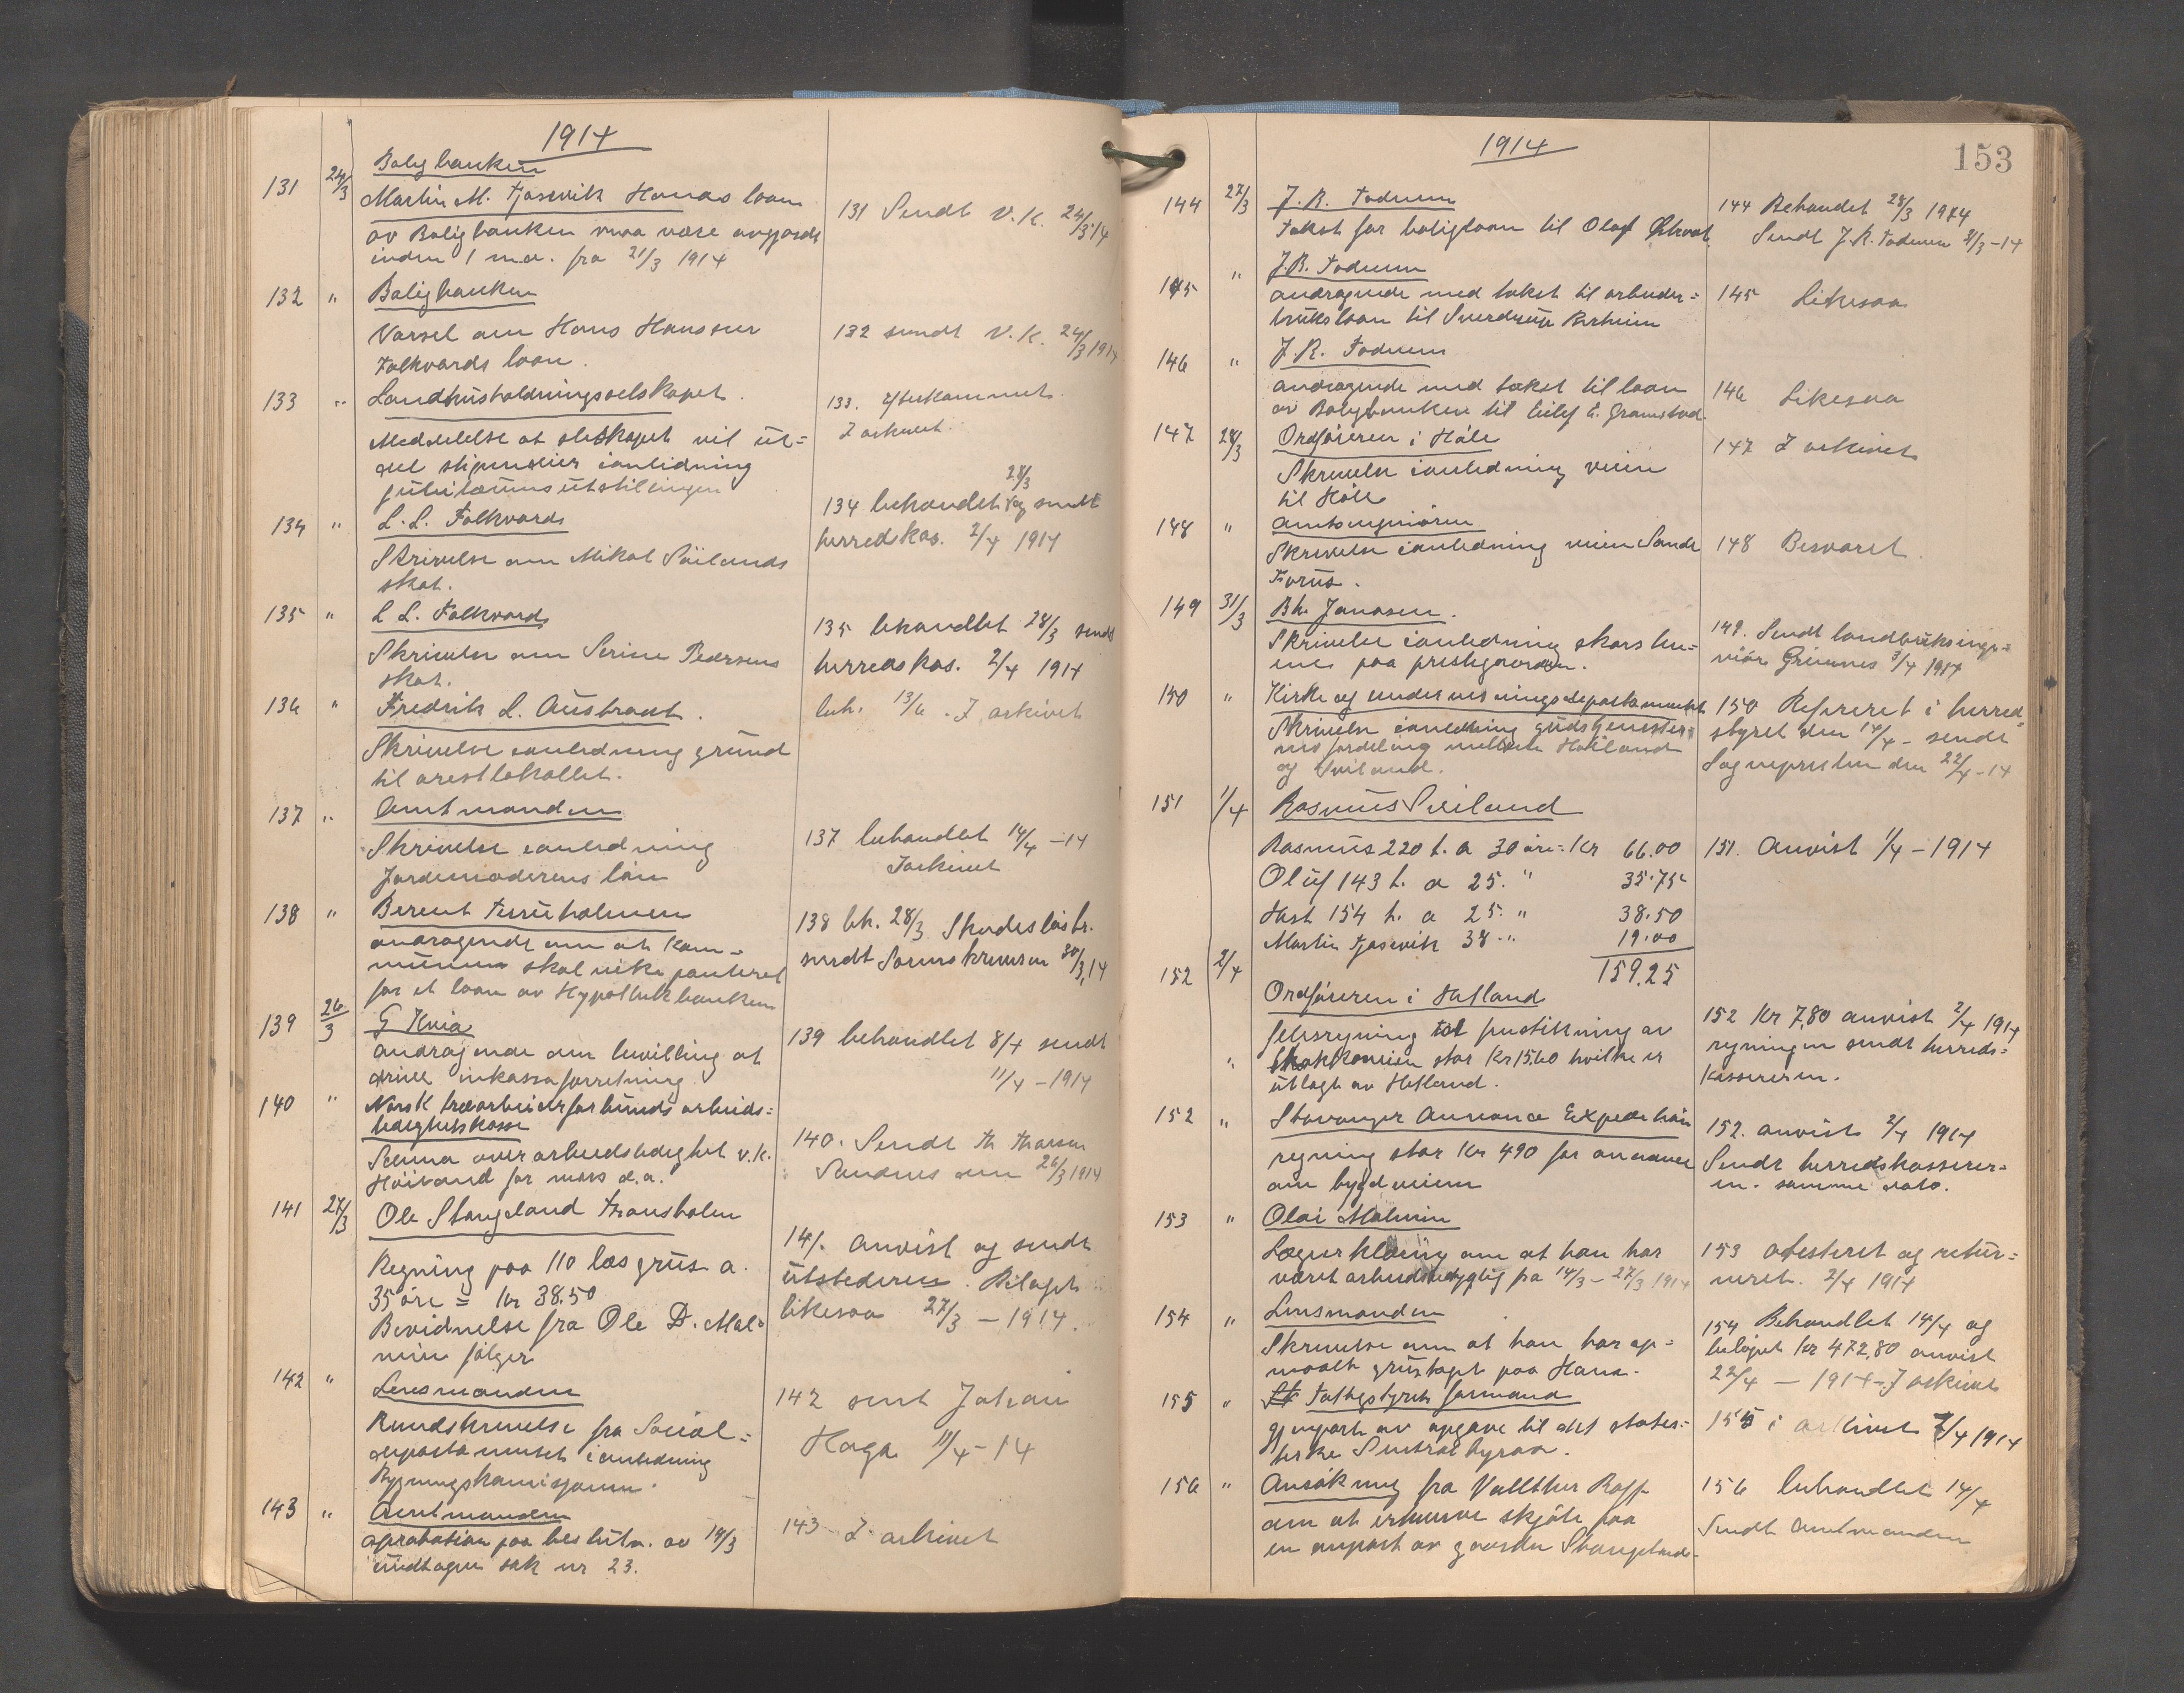 1914
131 24/3 Boligbanken
Martin M. Tjosevik Hanas loan
av Boligbanken maa være avgjordt
inden 1 md. fra 21/3 1914
131 Sendt V.K. 24/3 14
132 " Boligbanken
Varsel om Hans Hansens
Folkvords loan.
132 sendt V.K. 24/3 1914
133 " Landhusholdningsselskapet.
Meddelelse at selskapet vil ut=
del stipendier ianledning
jubilæumsutstillingen
133. Efterkommet.
I arkivet.
134 " L. L. Folkvord
Skrivelse om Mikal Söilands
skat.
28/3
134 behandlet og sendt
herredskas. 2/4 1914
135 " L L. Folkvord
Skrivelse om Serine Pedersens
skat.
135 behandlet 28/3 sendt
herredskas. 2/4 1914
136 " Fredrik L. Austraat.
Skrivelse ianledning grund
til arestlokallet.
beh. 13/6. I arkivet
137 " Amtmanden
Skrivelse ianledning
Jordemoderens lön
137 behandlet 14/4 -14
I arkivet
138 " Berent
andragende om at kom=
munen skal vike panteret
for et loan av Hypothekbanken
138 bh. 28/3 Skadeslösbr.
sendt Sorenskriveren 30/3 14
139 26/3 G Kvia
andragende om bevilling at
drive inkassoforretning
139 behandlet 8/4 sendt
11/4 - 1914
140 " Norsk træarbeiderforbunds arbeids=
ledighetskasse
Skema over arbeidsledighet v.k.
Höiland for mars d.a.
140. Sendt Th
Sandnes den 26/3 1914
141 27/3 Ole Stangeland Tronsholen
Regning paa 110 læs grus a.
35 öre = kr 38.50
Bevidnelse fra Ole D. Mal=
min fölger
141. anvist og sendt
utstederen. Bilaget
likesaa 27/3 - 1914.
142 " Lensmanden
Rundskrivelse fra Social=
departementet ianledning
Bygningskomisjonen.
142 sent Johan
Haga 11/4 - 14
143 " Amtmanden
aprobation paa beslutn. av 14/3
undtagen sak nr 23.
143 I arkivet
1914
153
144 27/3 J. R. Foduen
Takst for boligloan til Olaf
144 Behandlet 28/3 1914
Sendt J.R. Foduen 31/3 -14
145 " J.R. Foduen
andragende med takst til arbeider=
bruksloan til Sverdrup Berheim
145 Likesaa
146 " J. R. Foduen
andragende med takst til loan
av Boligbanken til Eilef E. Gramstad
146 Likesaa
147 28/3 Ordföreren i Höle
Skrivelse ianledning veien
til Höle
147 I arkivet
148 " Amtsingeniören
Skrivelse ianledning veien Sande
Forus.
148 Besvaret.
149 31/3 Bh. Jonasen.
Skrivelse ianledning skorstene=
nes paa prestegaarden.
149. Sendt landbruksinge=
niör Grimnes 3/4 1914
150 " Kirke og undervisningsdepartementet
Skrivelse ianledning gudstjenester=
nes fordeling mellem Höiland
og Sviland.
150 Refereret i herred=
styret den 14/4 - sendt
Sogneprесten den 22/4 -14
151 1/4 Rasmus Sviland
Rasmus 220 t. a 30 öre = Kr 66.00
Oluf 143 t. a 25. " 35.75
Hest 154 t. a 25. " 38.50
Martin Tjosevik 38 " 19.00
159.25
151. Anvist 1/4 - 1914
152 2/4 Ordföreren i Hetland
" utlagt av Hetland.
152 Kr 7,80 anvist 2/4 1914
regningen sendt herreds=
kassereren.
152 " Stavanger Annonce Expedition
regning stor Kr 490 for annoncer
om bygdveiene
152. anvist 2/4 1914
Sendt herredskasserer=
en. samme dato.
153 " Olai Malmin
Lægeerklæring om at han har
været arbeidsudygtig fra 14/3 - 27/3 1914
153 atesteret og retur=
neret. 2/4 1914
154 " Lensmanden
Skrivelse om at han har op=
maalt grustaget paa Hana.
154 Behandlet 14/4 og
belöpet Kr 472,80 anvist
22/4 - 1914 - I arkivet
155 " Fattigstyrets formand
gjenpart av opgave til det statis=
tiske Sentralbyraa.
155 i arkivet 7/4 1914
156 " Ansökning fra Vallther Roff
om at erhverve skjöte paa
en anpart av gaarden Stangeland.
156 behandlet 14/4
Sendt amtmanden